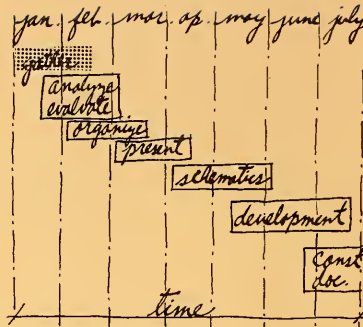 jan. feb. mar. ap. may june july
gather
analyze
evaluate
organize
present
schematics
development
const
doc.
time